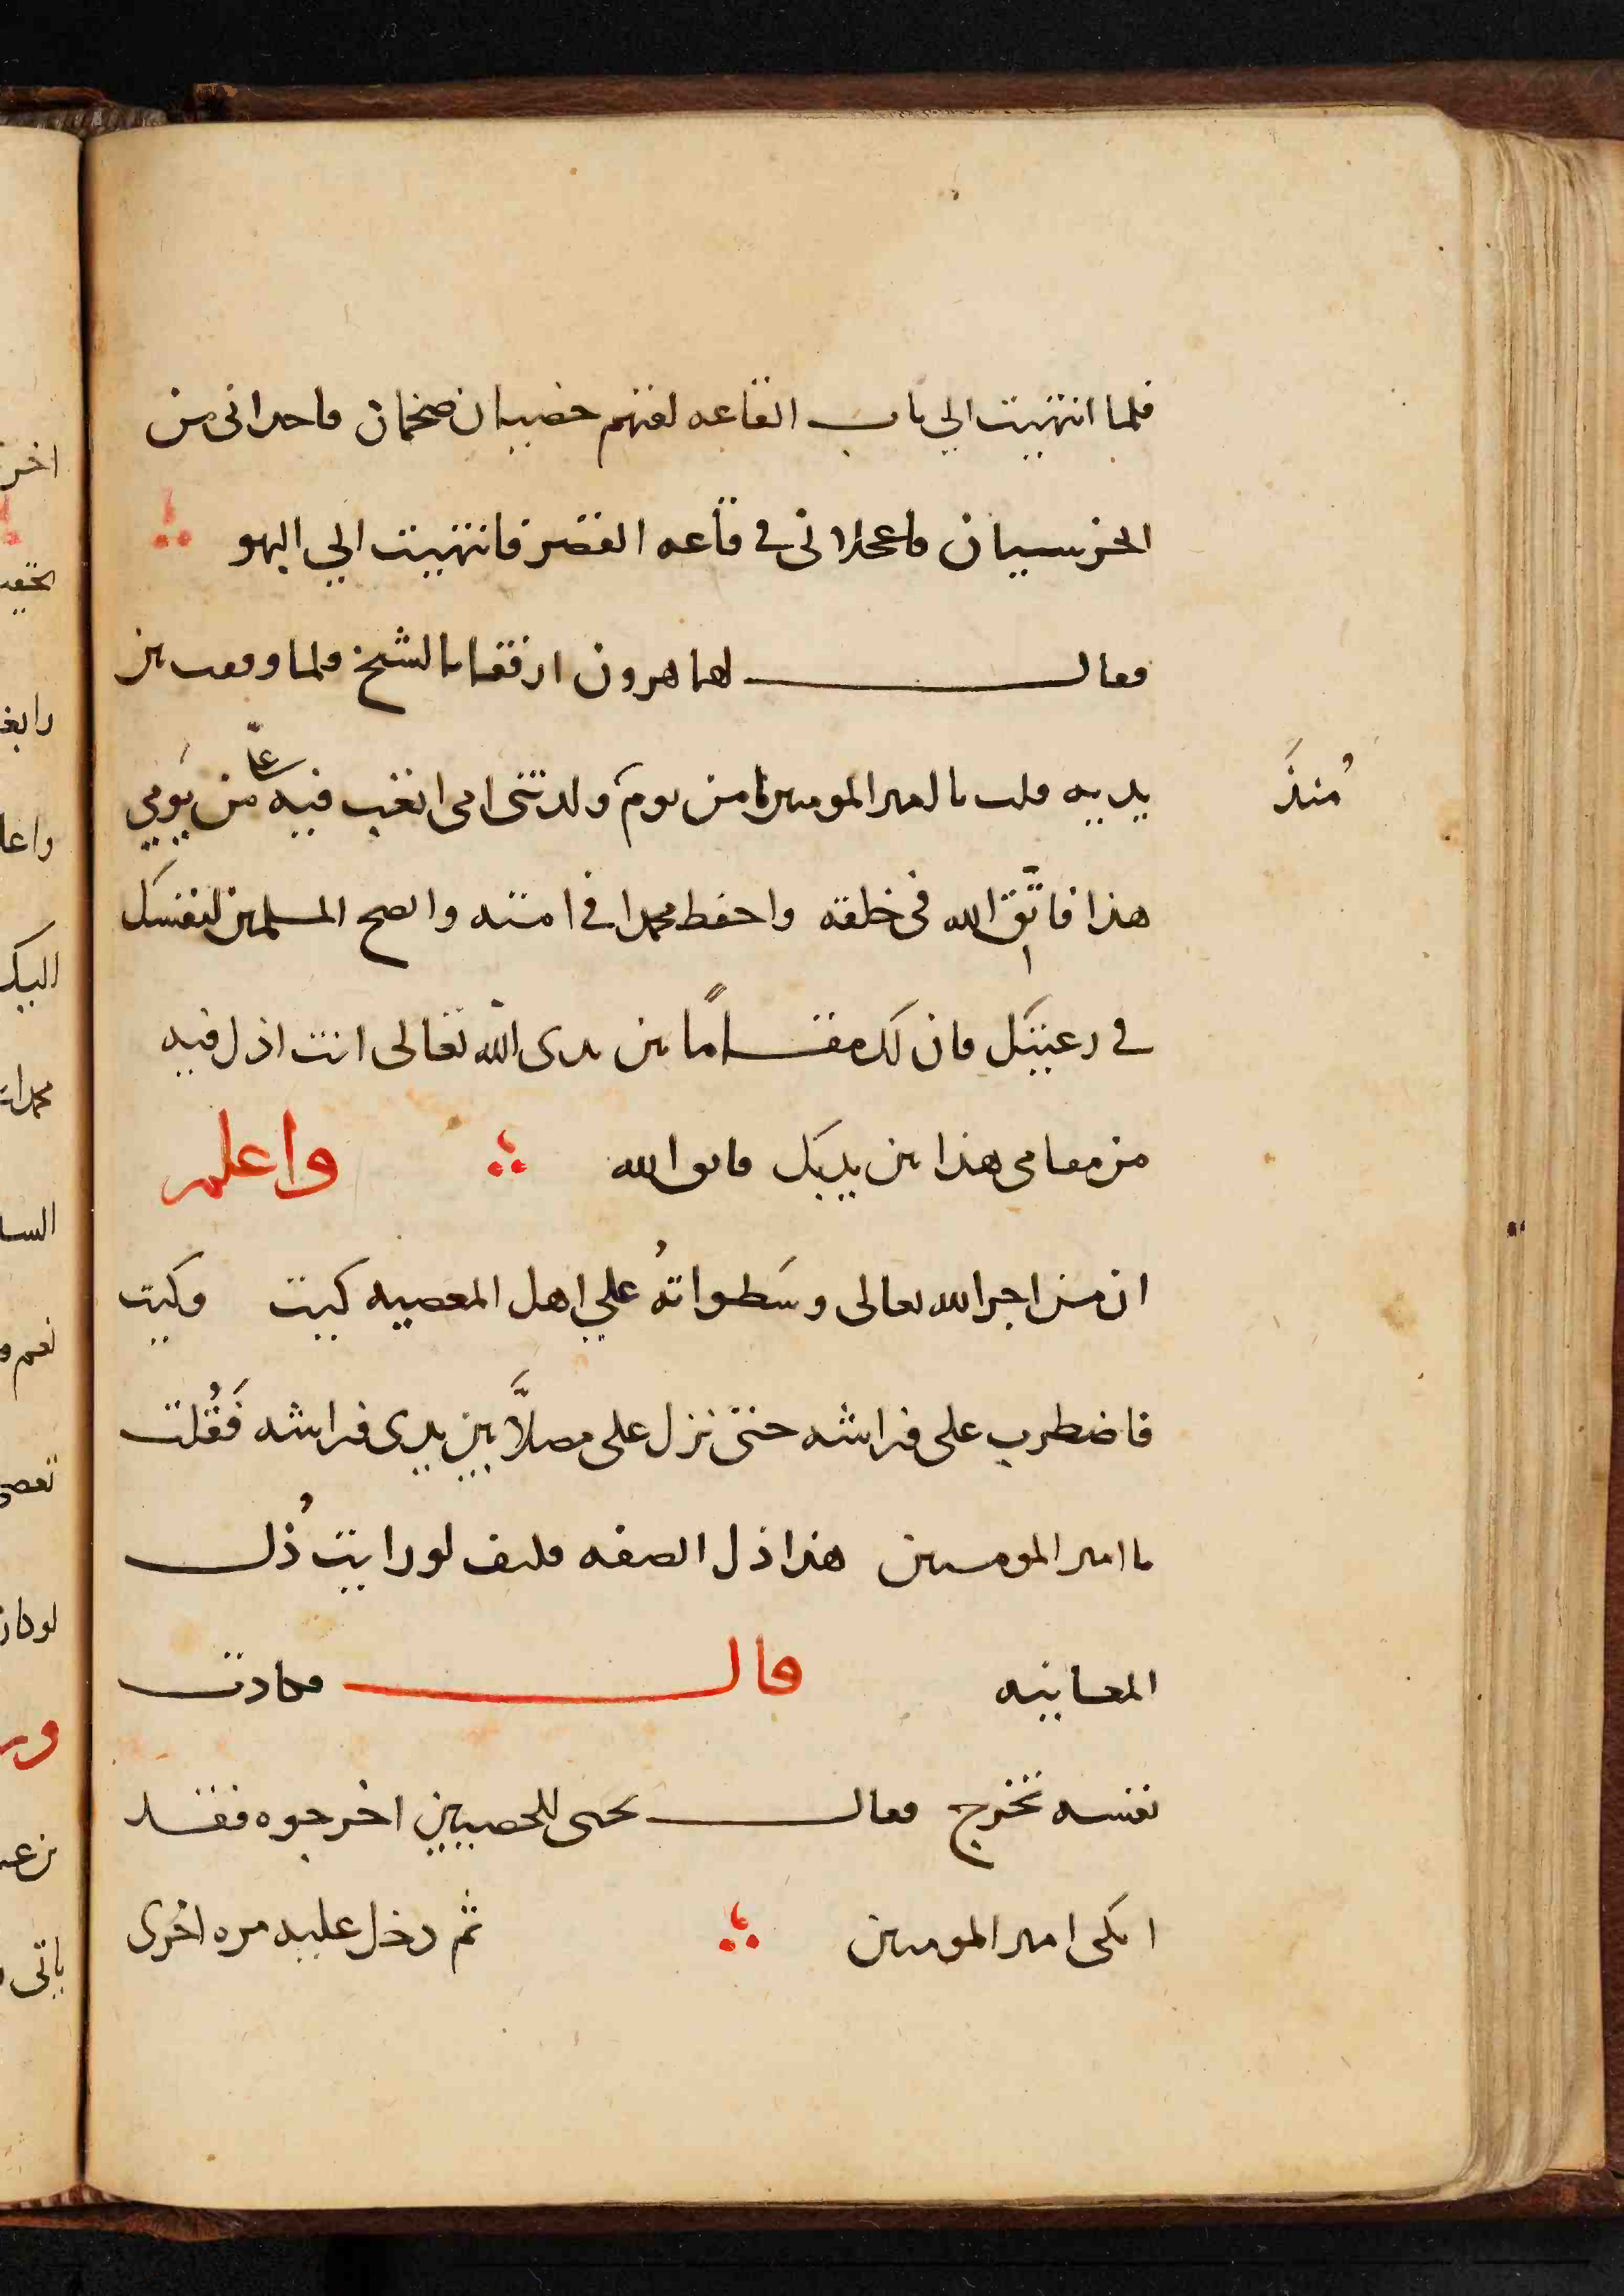 فلما انتهيت الي باب القاعه لقيهم خصيان ضخمان فاخذاني من
الخرسيان فاعجلاني في قاعه القصر فانتهيت الي البهو
فقال لهما هرون ارفقا بالشيخ فلما وقعت بين
مُنذ
يديه قلت يا امير المومنين ما من يوم ولدتني امي اتعب فيه عليّ من يَومي
هذا فاتّق الله في خلقه واحفظ محمدا في امته وانصح المسلمين لنفسك
في رعيتك فان لك مقامًا بين يدي الله تعالى انت اذل فيه
من مقامي هذا بين يديك فاتق الله واعلم
ان من اجر الله تعالى وسَطواتهُ علي اهل المعصيه كيت وكيت
فاضطرب على فراشه حتى نزل على مصلاَّ بين يدي فراشه فَقُلت
يا امير المومنين هذا ذل الصفه فكيف لو رايت ذُل
المعاينه قال فكادت
نفسه تخرج فقال يحيى للخصيين اخرجوه فقد
ابكى امير المومنين ثم دخل عليه مره اخرى